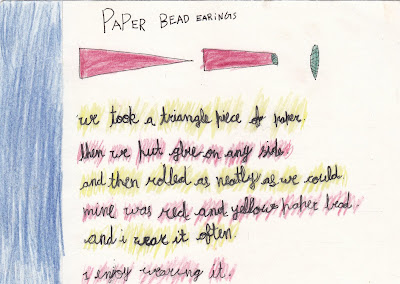 PAPER BEAD EARINGS
we took a triangle piece of paper.
then we put glue on any side
and then rolled as neatly as we could.
mine was red and yellow paper bead.
and i wear it often.
i enjoy wearing it.